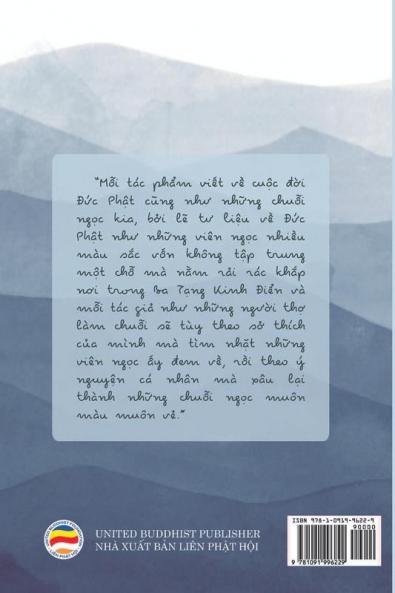 "Mỗi tác phẩm viết về cuộc đời
Đức Phật cũng như những chuỗi
ngọc kia, bởi lẽ tư liệu về Đức
Phật như những viên ngọc nhiều
màu sắc vốn không tập trung
một chỗ mà nằm rải rác khắp
nơi trong Ba Tạng Kinh Điển và
mỗi tác giả như những người thợ
làm chuỗi sẽ tùy theo sở thích
của mình mà tìm nhặt những
viên ngọc ấy đem về, rồi theo ý
nguyện cá nhân mà xâu lại
thành những chuỗi ngọc muôn
màu muôn vẻ."
UNITED BUDDHIST PUBLISHER
NHÀ XUẤT BẢN LIÊN PHẬT HỘI
ISBN 978-1-0919-9622-9
90000
9 781091 996229